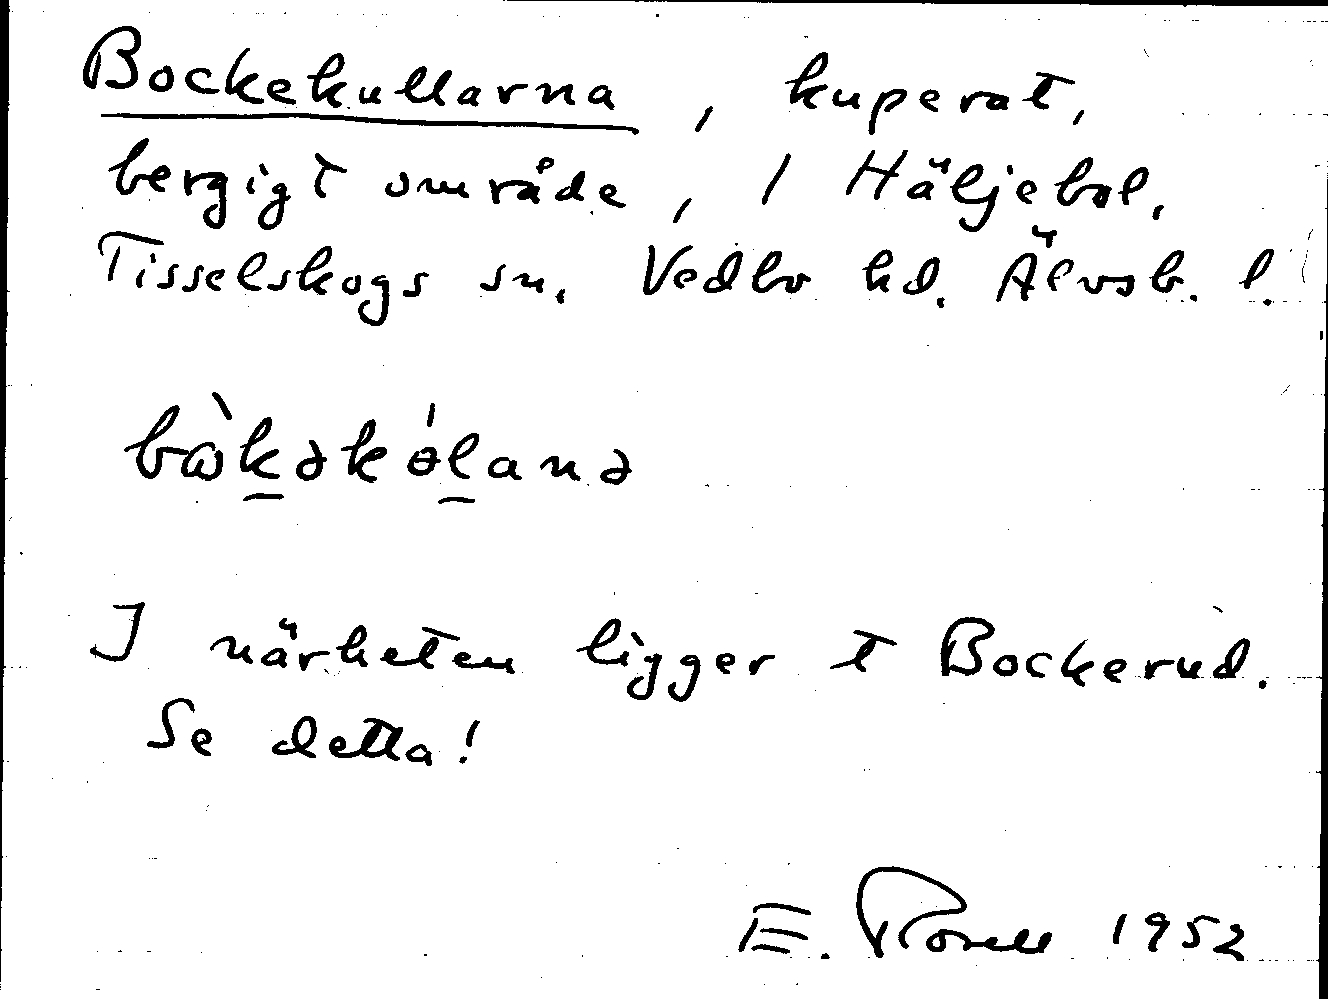 Bockekullarna, kuperat,
bergigt område, 1 Häljebol,
Tisselskogs sn. Vedbo hd. Älvsb. l.
bὼkəkǿlanə
I närheten ligger t Bockerud.
Se detta!
E. Rosell 1952